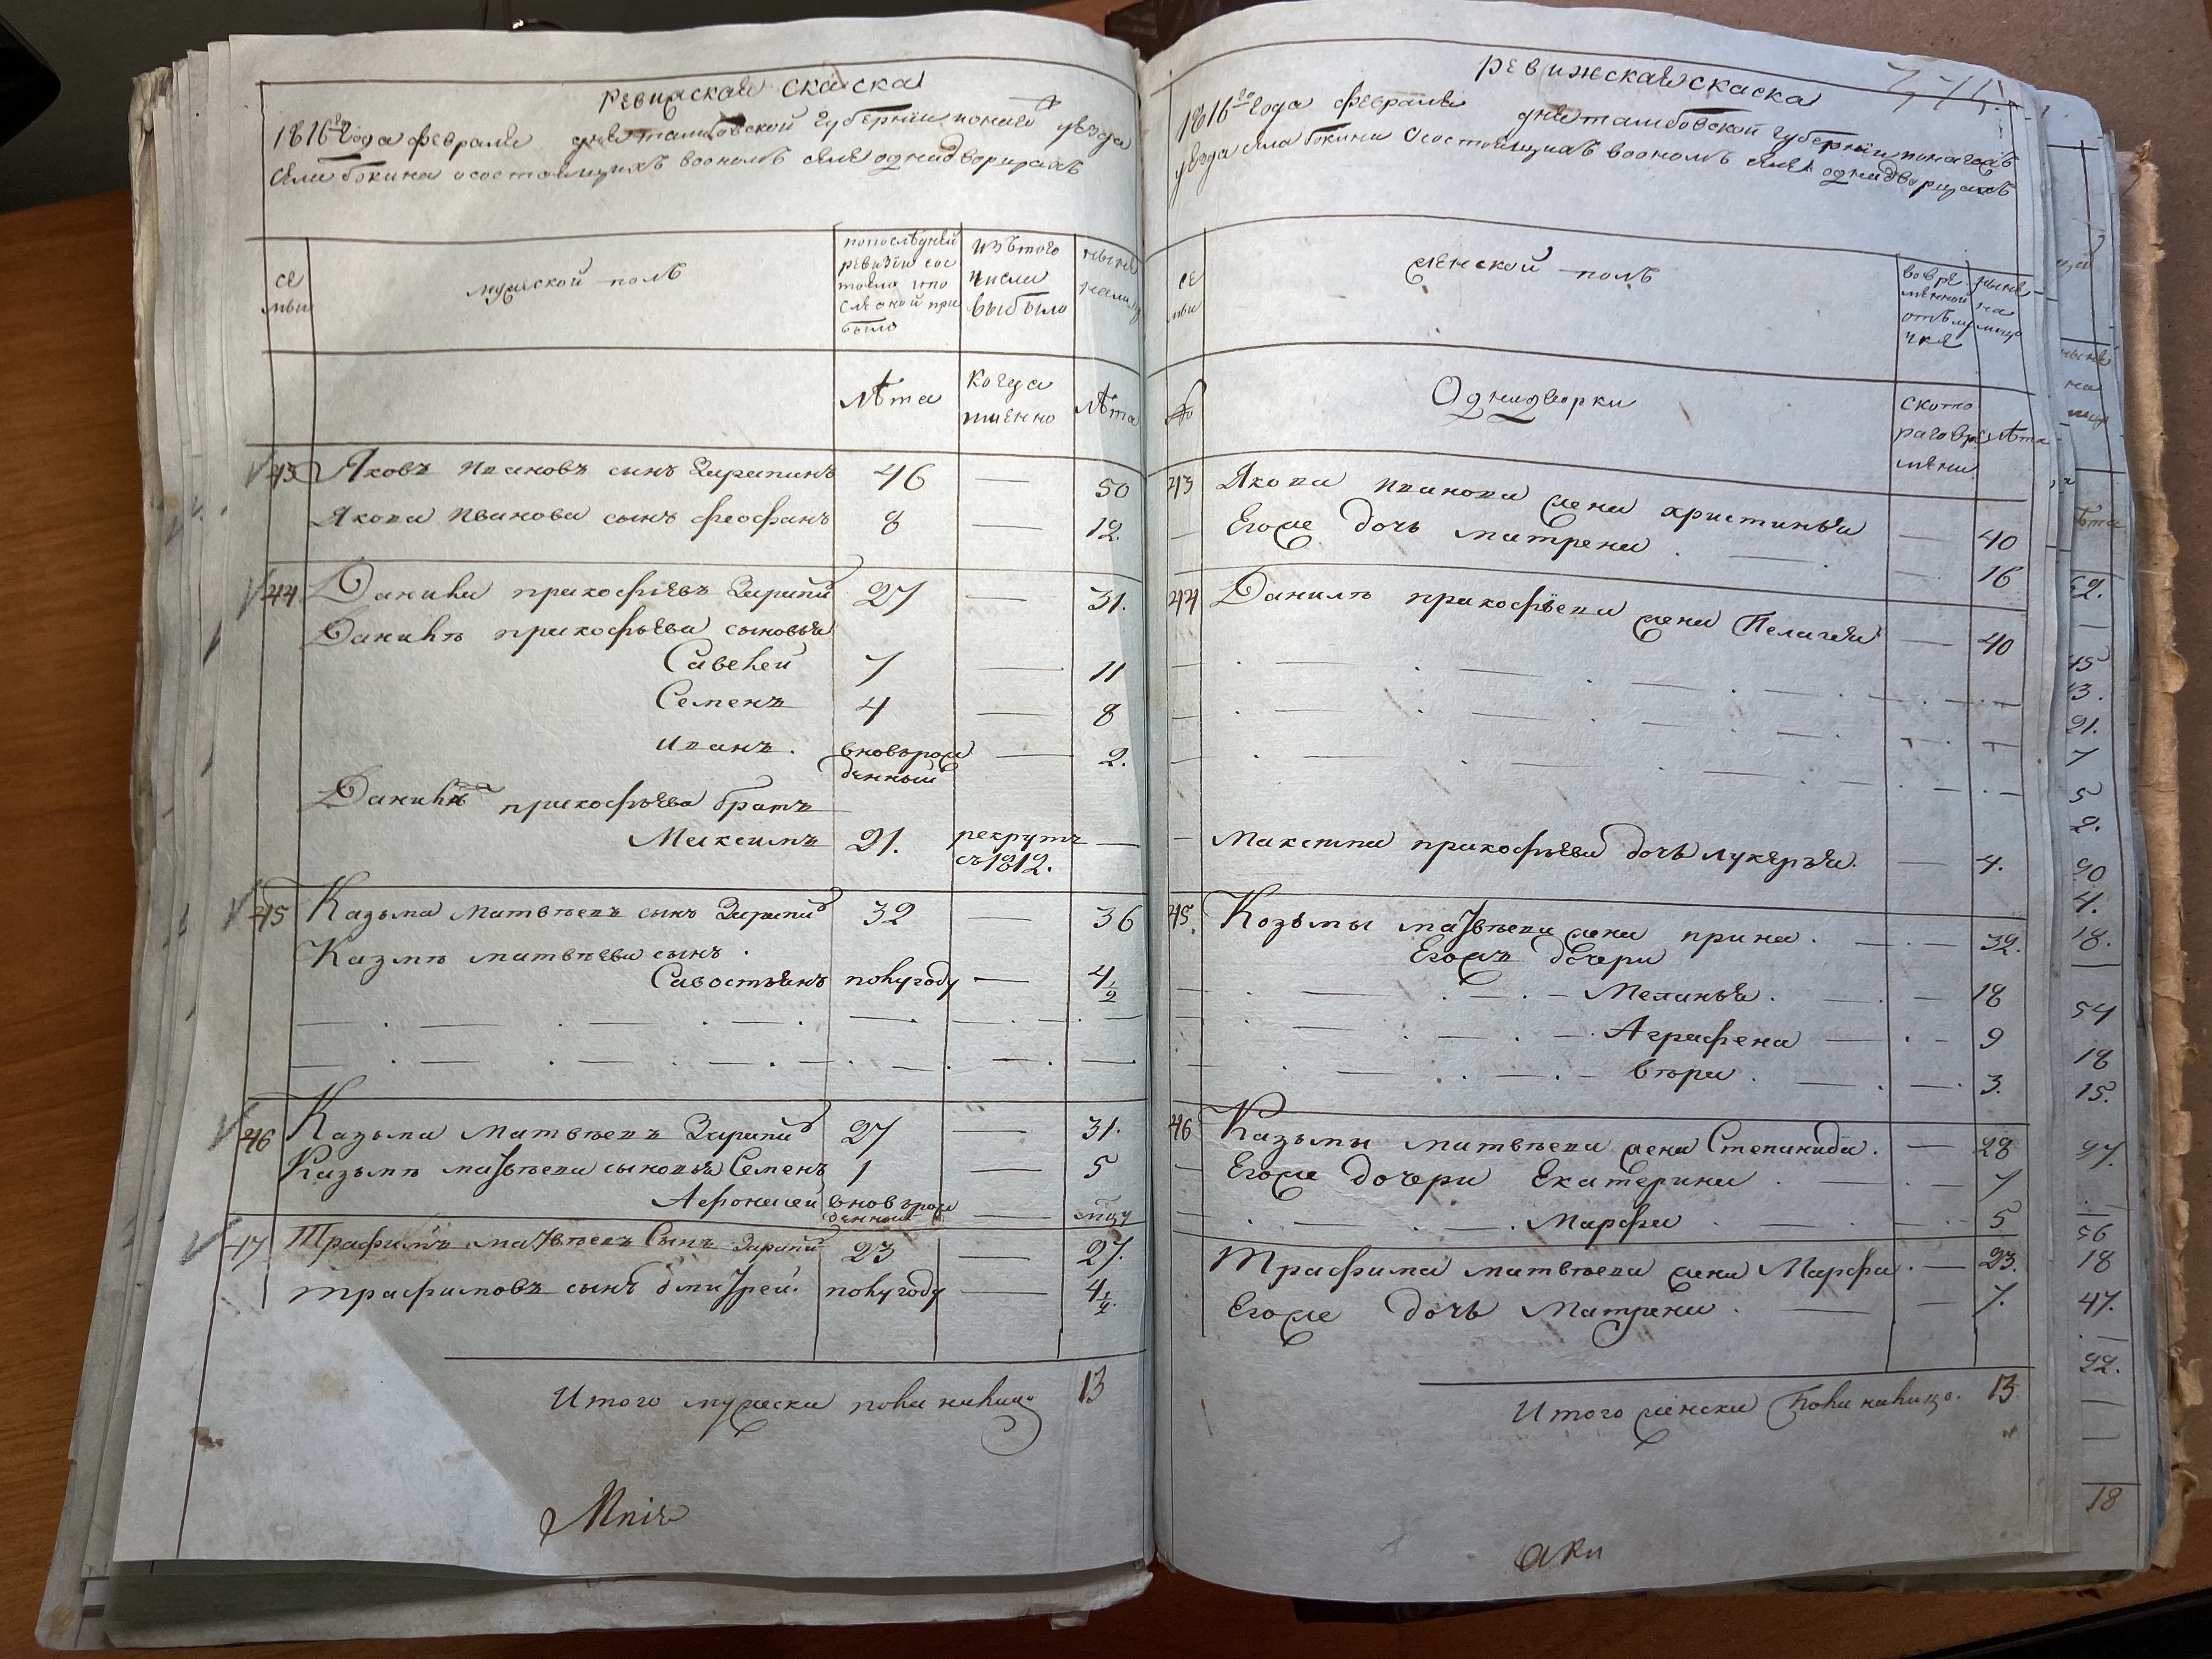 ревижская скаска
1816го года февраля дня тамбовской губернии
села бокина о состоящихъ во ономъ селе однадворцахъ
се
мьи
мужской полъ
попоследней
ревизии сос
тояло ипо
сле оной при
было
изътого
числа
выбыло
ныне
налицо
лѣта
когда
имѣнно
лѣта
43 Яковъ Ивановъ сынъ 46 — 50
Якова Иванова сынъ феофанъ 8 — 12.
44 Данила пракофьевъ 27 — 31.
Данилы пракофьева сыновья
Савелей 7 — 11
Семенъ 4 — 8
Иванъ. вновьрож
денный — 2.
Данилы пракофьева братъ
Максимъ 21. рекрутъ —
съ1812.
45 Казьма матвѣевъ сынъ 32 — 36
Казмы матвѣева сынъ.
Савостьянъ полугоду — 4 1/2
46 Казьма Матвѣевъ 27 — 31.
Казьмы матвѣева сыновья Семенъ 1 — 5
Афонасей вновьрож
денный —
47 Трафимъ матвѣевъ Сынъ 23 — 27.
трафимовъ сынъ дмитрей. полугоду — 4 1/2
Итого мужеска пола налицо 13
ревижская скаска
1816го года февраля дня тамбовской губернии
уезда села бокина о состоящихъ во ономъ селе однадворцахъ
се
мьи
женской полъ
вовре
мянной
отълу
чке
ныне
на
лицо
№
Однадворки
ското
раго вре
мяни
лѣта
43 Якова Иванова жена христинья — 40
Егоже дочь матрена. — 16
44 Данилы пракофьева жена Пелагея — 40
Максима пракофьева дочь лукерья. — 4.
45. Козьмы матвѣева жена ирина. — 39.
Егожъ дочери
Меланья. — 18
Аграфена — 9
вѣра. — 3.
46 Казьмы матвѣева жена Степанида. — 28
Егоже дочери Екатерина. — 7
Марфа — 5
Трафима матвѣева жена Марфа. — 23.
Егоже дочь Матрена. — 7.
Итого женска пола налицо. 13